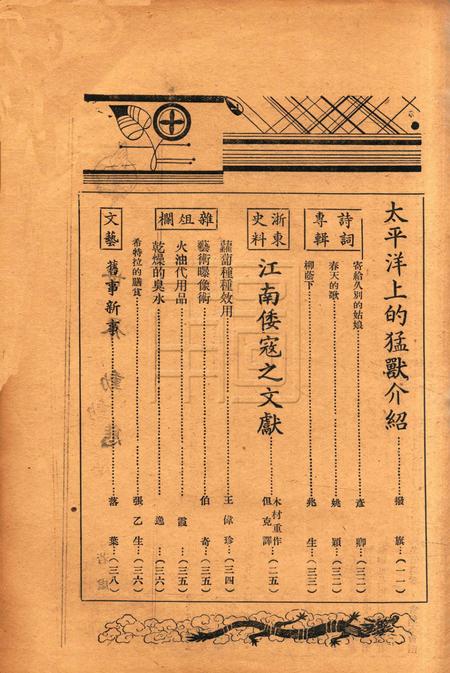 太平洋上的猛獸介紹……撥旗…(一一)
詩詞專輯
寄給久別的姑娘……彥卿…(三二)
春天的歌……姚穎…(三二)
柳蔭下……兆生…(三三)
浙東史料
江南倭寇之文獻……木村重作 但克譯…(二五)
雜俎欄
蘿蔔種種效用……王偉珍…(三四)
藝術曝像術……伯奇…(三五)
火油代用品……霞…(三五)
乾燥的臭水……逸…(三六)
希特拉的膳食……張乙生…(三六)
文藝
舊事新事……落葉…(三八)